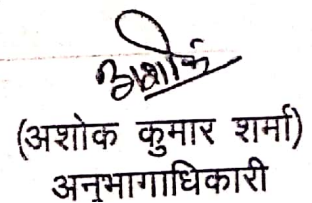 अशोक
(अशोक कुमार शर्मा)
अनुभागाधिकारी